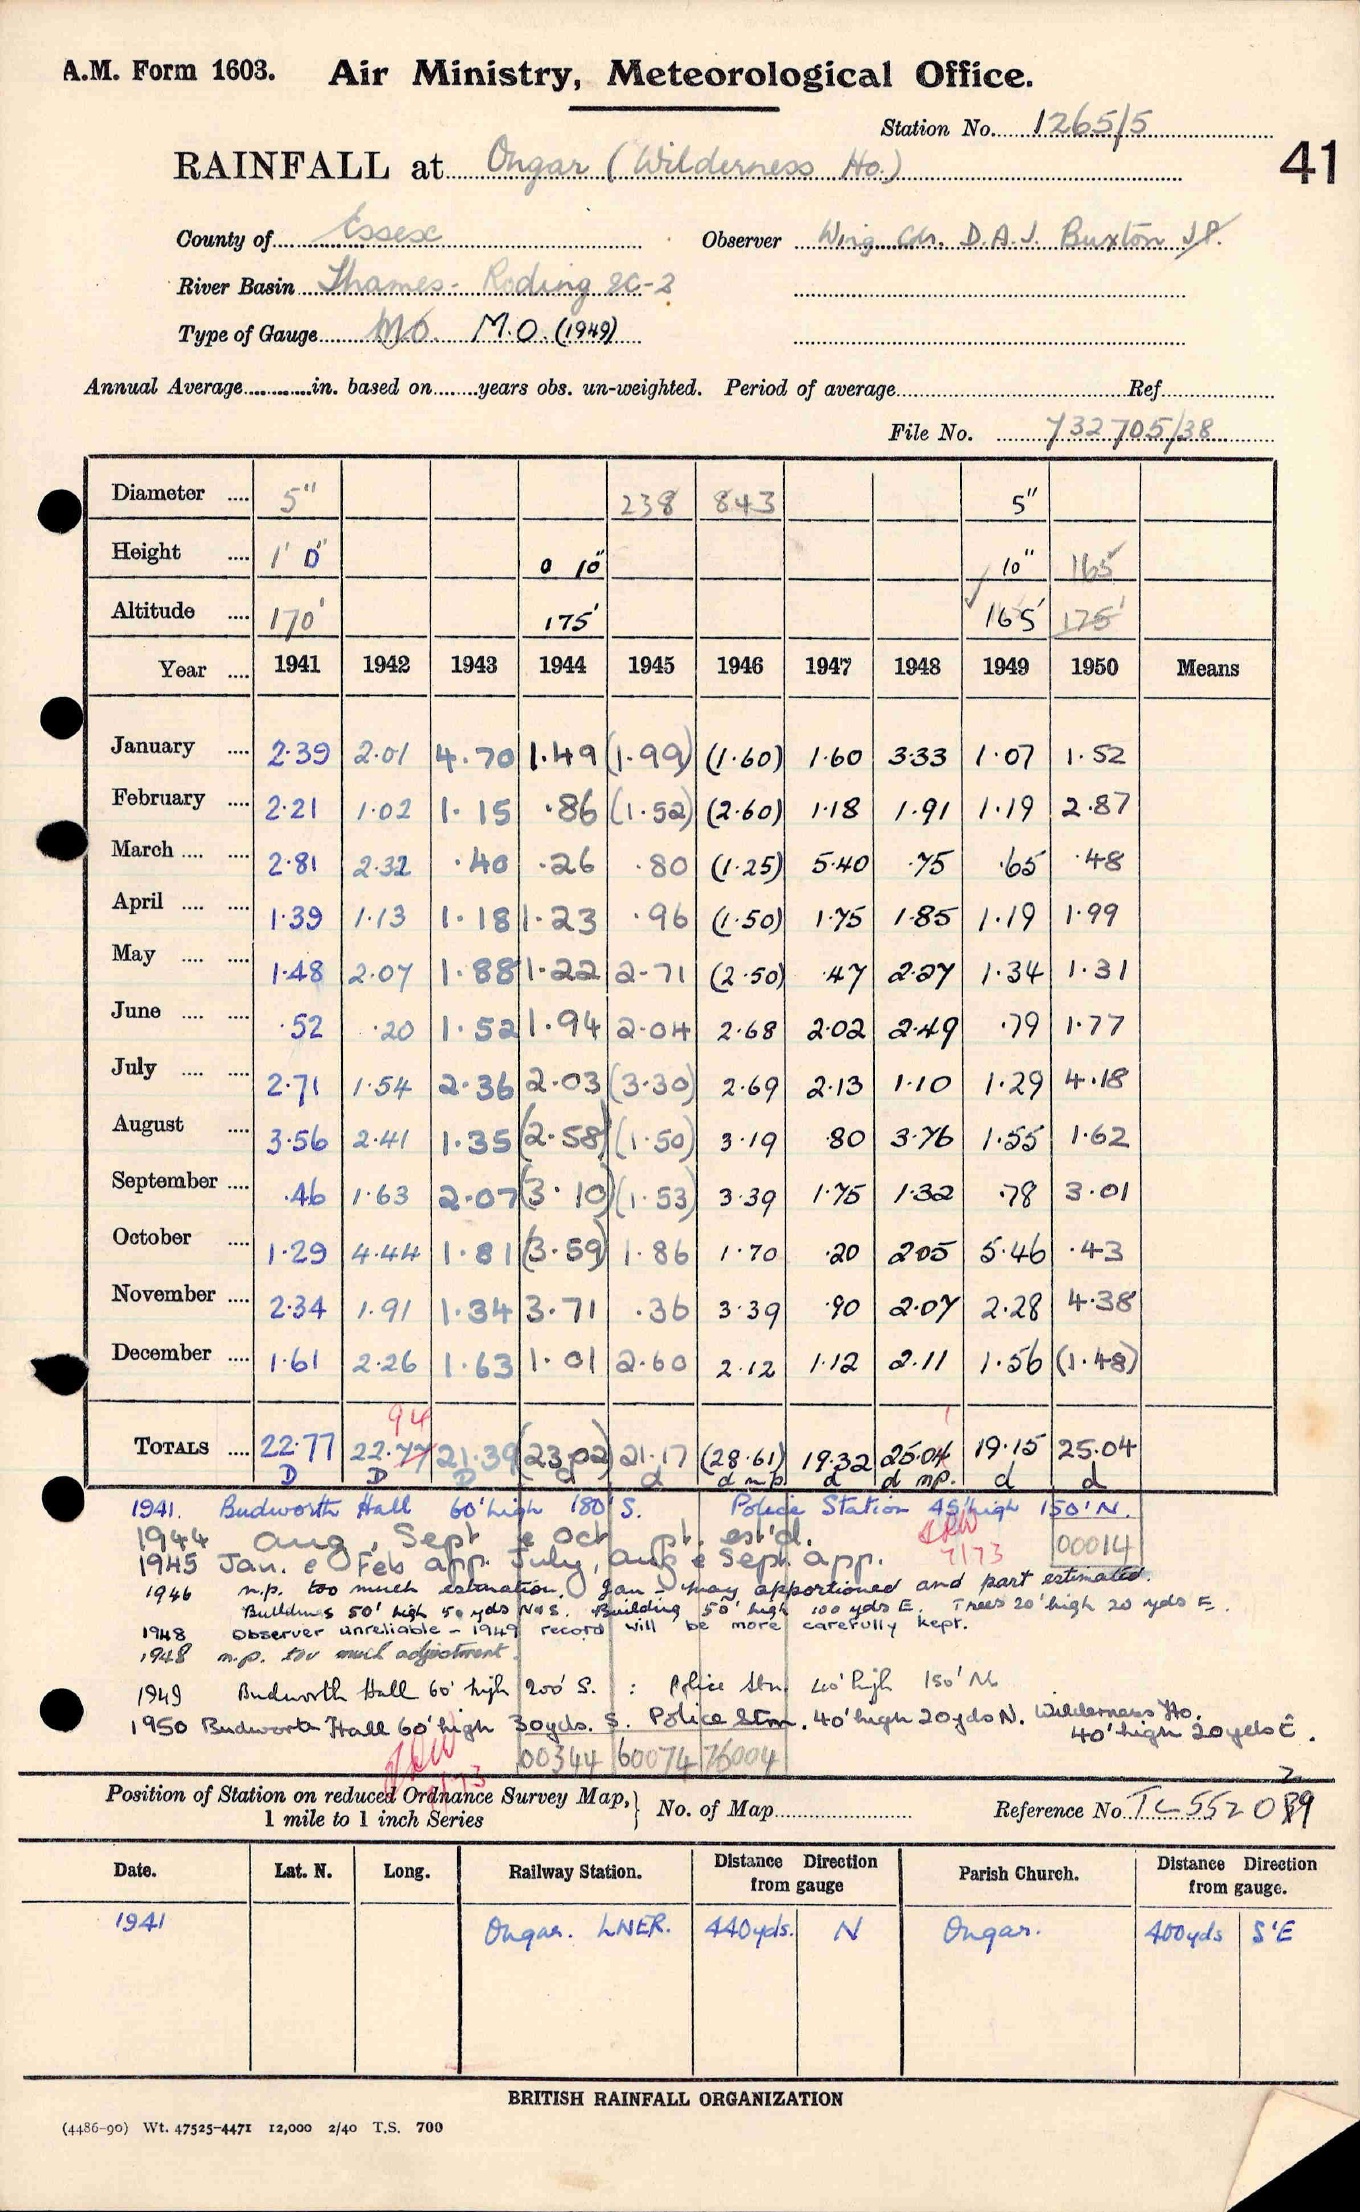 A.M. Form 1603. Air Ministry, Meteorological Office.
Station No. 1265/5
RAINFALL at Ongar (Wilderness Ho.) 41
County of Essex Observer Wing Cdr. D.A.J. Buxton J.P.
River Basin Thames - Roding 2C-2
Type of Gauge M.O. M.O. (1949)
Annual Average in. based on years obs. un-weighted. Period of average Ref
File No. 732705/38
Diameter 5" 238 843 5"
Height 1' 0" 0 10" 10" 165
Altitude 170' 175' 165' 175'
Year 1941 1942 1943 1944 1945 1946 1947 1948 1949 1950 Means
January 2.39 2.01 4.70 1.49 (1.99) (1.60) 1.60 3.33 1.07 1.52
February 2.21 1.02 1.15 .86 (1.52) (2.60) 1.18 1.91 1.19 2.87
March 2.81 2.32 .40 .26 .80 (1.25) 5.40 .75 .65 .48
April 1.39 1.13 1.18 1.23 .96 (1.50) 1.75 1.85 1.19 1.99
May 1.48 2.07 1.88 1.22 2.71 (2.50) .47 2.27 1.34 1.31
June .52 .20 1.52 1.94 2.04 2.68 2.02 2.49 .79 1.77
July 2.71 1.54 2.36 2.03 (3.30) 2.69 2.13 1.10 1.29 4.18
August 3.56 2.41 1.35 (2.58) (1.50) 3.19 .80 3.76 1.55 1.62
September .46 1.63 2.07 (3.10) (1.53) 3.39 1.75 1.32 .78 3.01
October 1.29 4.44 1.81 (3.59) 1.86 1.70 .20 2.05 5.46 .43
November 2.34 1.91 1.34 3.71 .36 3.39 .90 2.07 2.28 4.38
December 1.61 2.26 1.63 1.01 2.60 2.12 1.12 2.11 1.56 (1.48)
94 1
TOTALS 22.77 22.77 21.39 (23.02) 21.17 (28.61) 19.32 25.04 19.15 25.04
D D D d d d m.p. d d m.p. d d
1941. Budworth Hall 60' high 180' S. Police Station 45' high 150' N.
1944 Aug, Sept & Oct pt. est'd.
7/73 00014
1945 Jan. & Feb app. July, Aug & Sept. app.
1946 n.p. too much estimation. Jan - May apportioned and part estimated.
Buildings 50' high 50 yds N & S. Building 50' high 100 yds E. Trees 20' high 20 yds E.
1948 Observer unreliable - 1949 record will be more carefully kept.
1948 n.p. too much adjustment.
1949 Budworth Hall 60' high 200' S. : Police Stn. 40' high 150' N
1950 Budworth Hall 60' high 30yds. S. Police Stn. 40' high 20yds N. Wilderness Ho.
40' high 20yds E.
00344 60074 76004
Position of Station on reduced Ordnance Survey Map,
1 mile to 1 inch Series No. of Map Reference No TL 552 0
Date. Lat. N. Long. Railway Station. Distance Direction from gauge Parish Church. Distance Direction from gauge.
1941 Ongar. LNER. 440yds. N Ongar. 400yds S'E
BRITISH RAINFALL ORGANIZATION
(4486-90) Wt. 47525-4471 12,000 2/40 T.S. 700